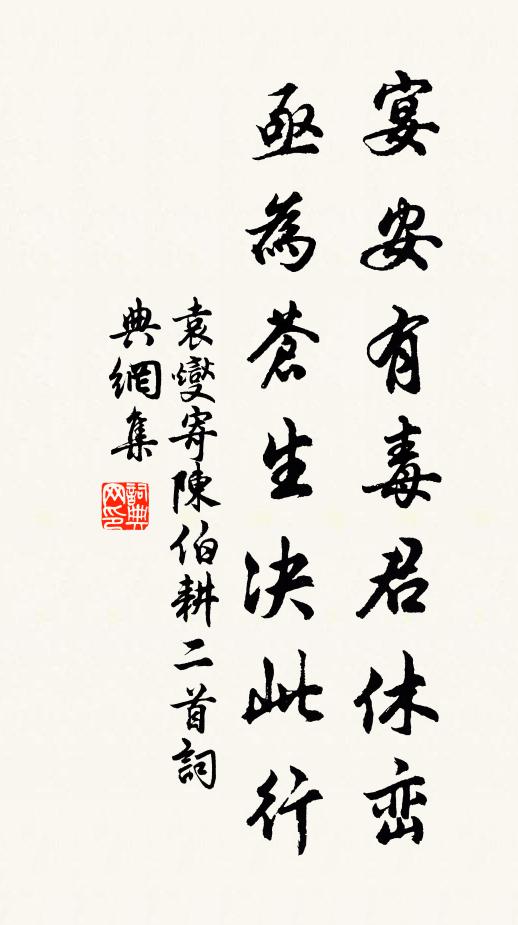 宴安有毒君休峦
亟為蒼生决此行
袁燮寄陳伯耕二首詞
典網集
詞典网印